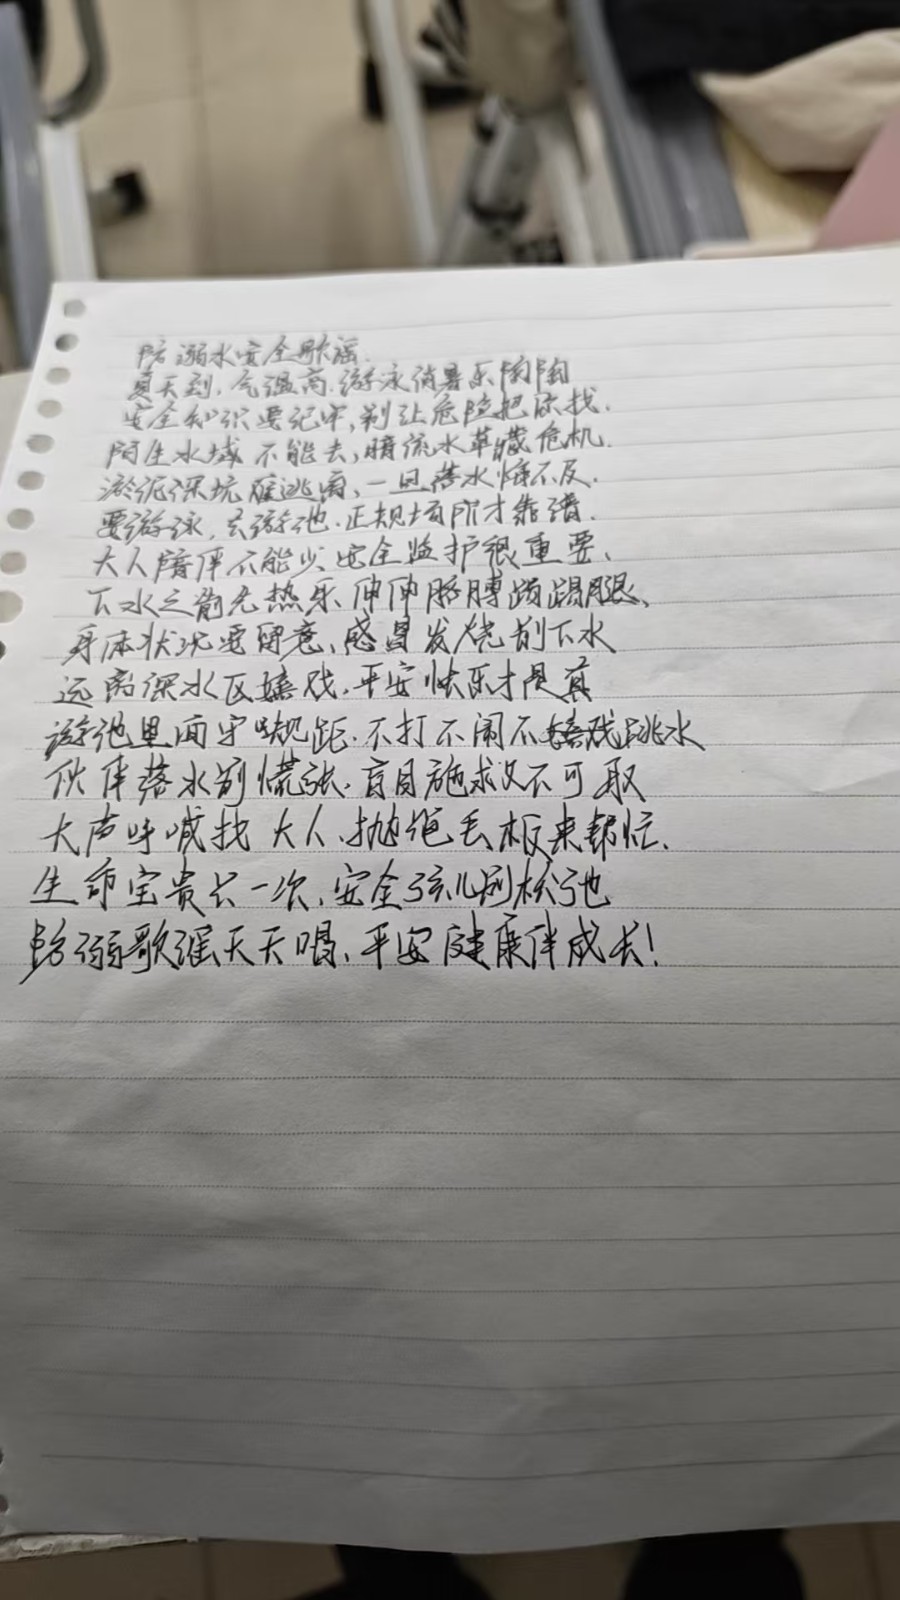 防溺水安全歌谣.
夏天到.气温高.游泳消暑乐陶陶
安全知识要记牢,别让危险把你找.
陌生水域不能去,暗流水草藏危机.
淤泥深坑难逃离、一旦落水悔不及.
要游泳,去游池.正规场所才靠谱.
大人陪伴不能少、安全监护很重要、
下水之前先热乐、伸伸胳膊踢踢腿、
身体状况要留意、感冒发烧别下水
远离深水区嬉戏.平安快乐才是真
游池里面守规距.不打不闹不跳水
伙伴落水别慌张.盲目施求又不可取
大声呼喊找大人、抛绳丢板来帮忙.
生命宝贵只一次、安全弦儿别松弛
防溺歌谣天天唱、平安健康伴成长!